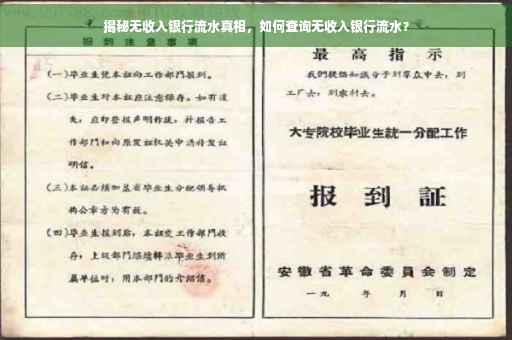 揭秘无收入银行流水真相，如何查询无收入银行流水？
报到注意事项
(一)毕业生凭本证向工作部门报到。
(二)毕业生对本证应注意保存。如有遗
失，应即登报声明作废，并报告工
作部门和向原发证机关申请补发证
明信。
(三)本证必须加盖省毕业生分配领导机
构公章方为有效。
(四)毕业生报到后，本证交工作部门收
存；上级部门
属单位时，用本部门的介绍信。
最高指示
我们提倡知识分子到群众中去，到
工厂去，到农村去。
大专院校毕业生统一分配工作
报到证
安徽省革命委员会制定
一九 年 月 日